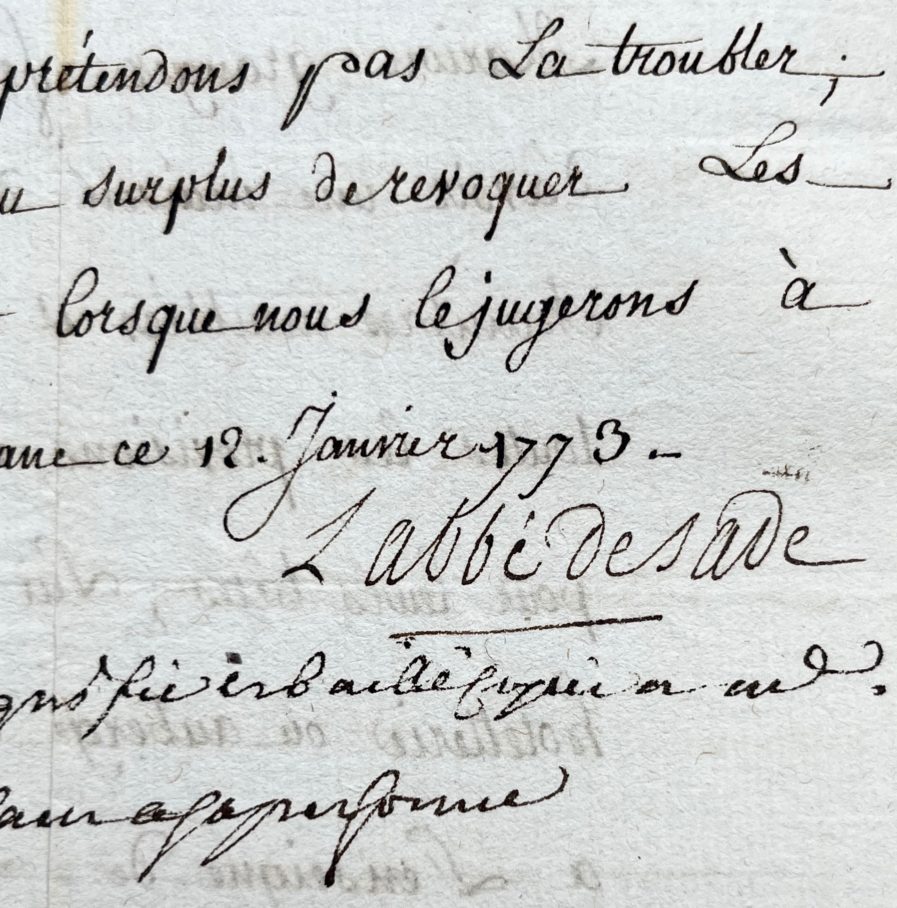 prétendons pas La troubler;
u surplus de revoquer Les
lorsque nous le jugerons à
ane ce 12. Janvier 1773.
L'abbé de Sade
signifié et baillé copie a md.
a sa personne